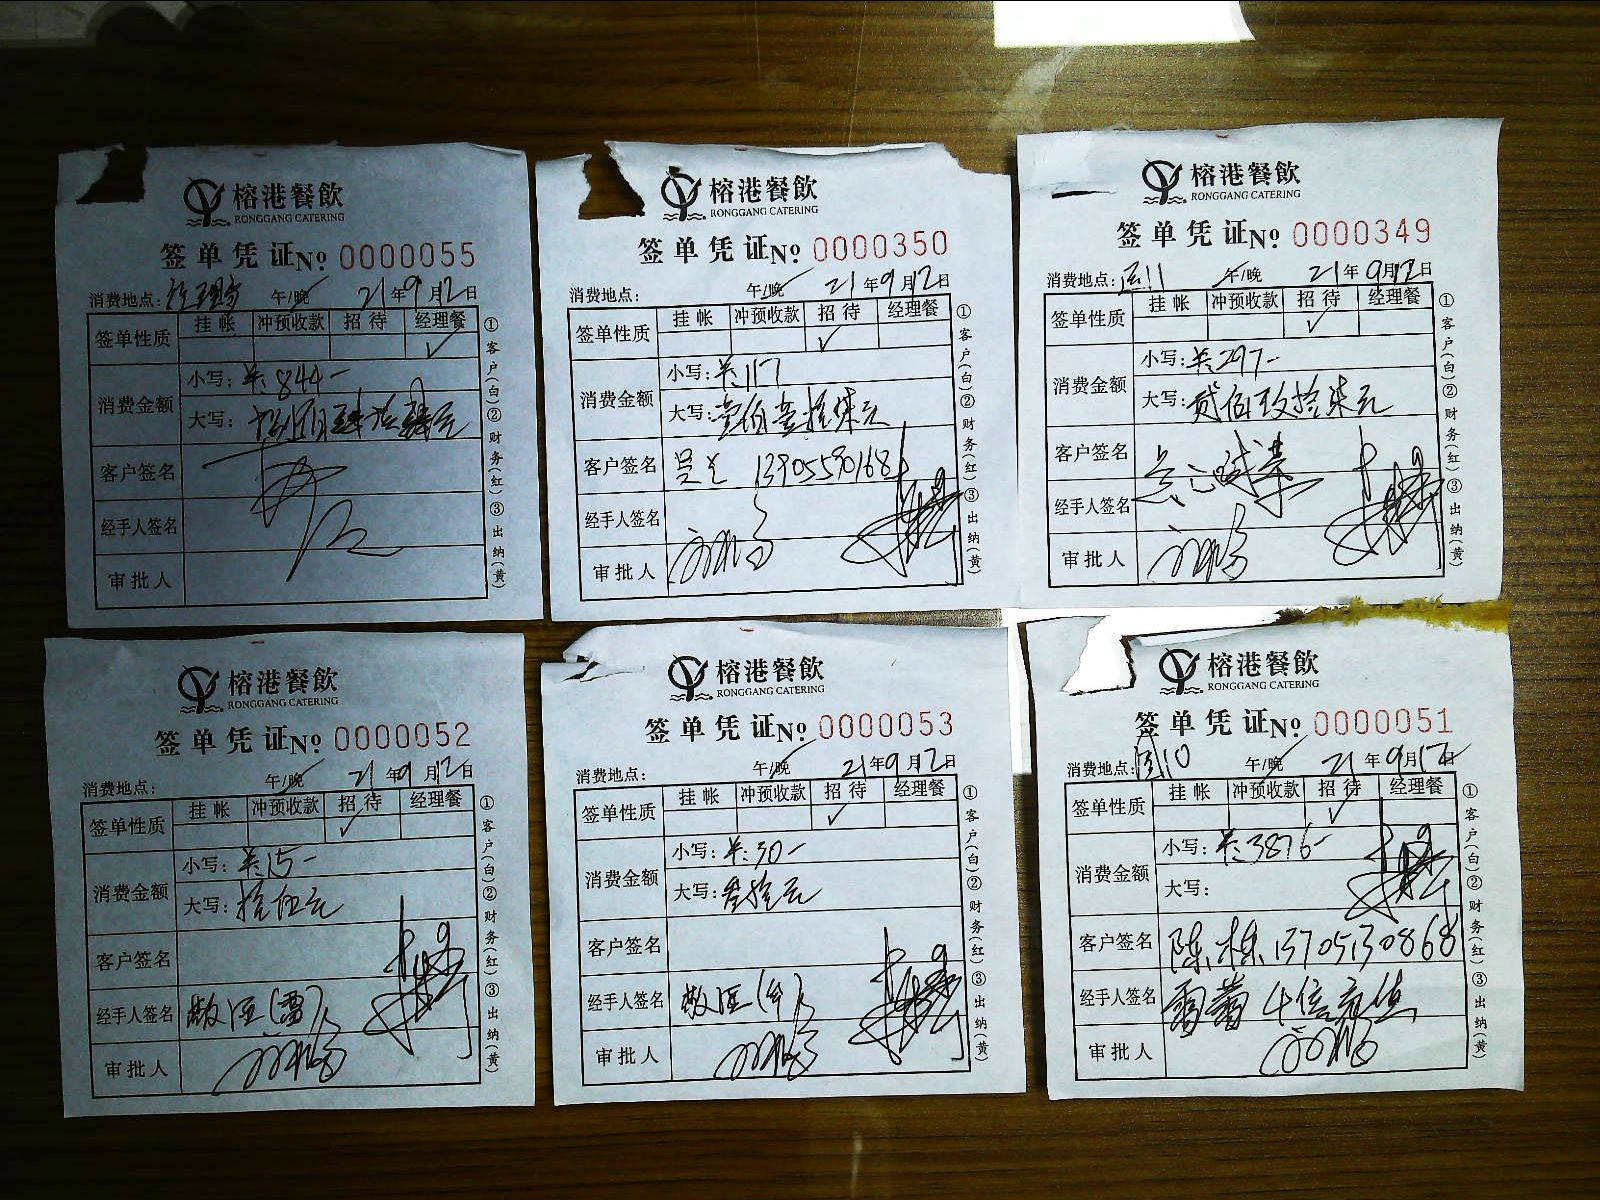 榕港餐飲
RONGGANG CATERING
签单凭证 No 0000055
消费地点: 经理餐 午/晚 21年9月12日
签单性质 挂帐 冲预收款 招待 经理餐
✓
消费金额 小写: ¥:844-
大写: 捌佰肆拾肆元
客户签名
经手人签名
审批人
①客户(白)②财务(红)③出纳(黄)
榕港餐飲
RONGGANG CATERING
签单凭证 No 0000350
消费地点: 午/晚 21年9月12日
签单性质 挂帐 冲预收款 招待 经理餐
✓
消费金额 小写: ¥:117
大写: 壹佰壹拾柒元
客户签名 13905590168
经手人签名
审批人
①客户(白)②财务(红)③出纳(黄)
榕港餐飲
RONGGANG CATERING
签单凭证 No 0000349
消费地点: 午/晚 21年9月12日
签单性质 挂帐 冲预收款 招待 经理餐
✓
消费金额 小写: ¥:297-
大写: 贰佰玖拾柒元
客户签名
经手人签名
审批人
①客户(白)②财务(红)③出纳(黄)
榕港餐飲
RONGGANG CATERING
签单凭证 No 0000052
消费地点: 午/晚 21年9月12日
签单性质 挂帐 冲预收款 招待 经理餐
✓
消费金额 小写: ¥:15-
大写: 拾伍元
客户签名
经手人签名
审批人
①客户(白)②财务(红)③出纳(黄)
榕港餐飲
RONGGANG CATERING
签单凭证 No 0000053
消费地点: 午/晚 21年9月12日
签单性质 挂帐 冲预收款 招待 经理餐
✓
消费金额 小写: ¥:30-
大写: 叁拾元
客户签名
经手人签名
审批人
①客户(白)②财务(红)③出纳(黄)
榕港餐飲
RONGGANG CATERING
签单凭证 No 0000051
消费地点: 午/晚 21年9月12日
签单性质 挂帐 冲预收款 招待 经理餐
✓
消费金额 小写: ¥:3876-
大写:
客户签名 陈栋 13705130868
经手人签名 雷蕾 4倍充值
审批人
①客户(白)②财务(红)③出纳(黄)